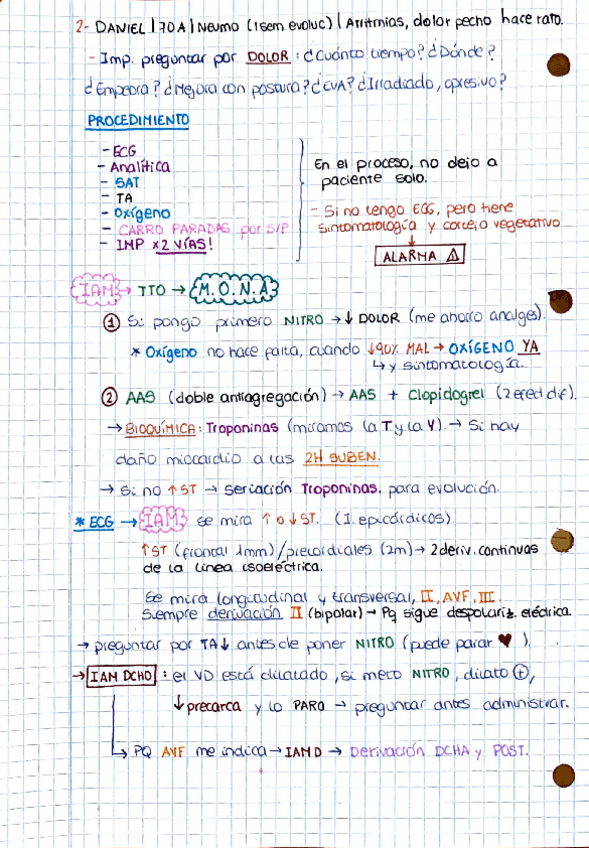 2- DANIEL | 70A | Neumo (1 sem evoluc) | Arritmias, dolor pecho hace rato.
- Imp. preguntar por DOLOR: ¿Cuánto tiempo? ¿Dónde?
¿Empeora? ¿Mejora con postura? ¿EVA? ¿Irradiado, opresivo?
PROCEDIMIENTO
- ECG
- Analítica
- SAT
- TA
- Oxígeno
- CARRO PARADAS por S/P
- IMP x2 VÍAS!
En el proceso, no dejo a
paciente solo.
- Si no tengo ECG, pero tiene
sintomatología y cortejo vegetativo
ALARMA ⚠
IAM → TTO → M.O.N.A
① Si pongo primero NITRO → ↓ DOLOR (me ahorro analges).
* Oxígeno no hace falta, cuando ↓90% MAL → OXÍGENO YA
↳ y sintomatología.
② AAS (doble antiagregación) → AAS + Clopidogrel (2 efect dif).
→ BIOQUÍMICA: Troponinas (miramos la T y la V). → Si hay
daño miocardio a las 2H SUBEN.
→ Si no ↑ST → seriación Troponinas. para evolución.
* ECG → IAM se mira ↑ o ↓ ST. (I. epicárdicos)
↑ST (frontal 1mm) / precordiales (2m) → 2 deriv. continuas
de la línea isoeléctrica.
Se mira longitudinal y transversal, II, AVF, III.
Siempre derivación II (bipolar) → Pq sigue despolariz. eléctrica.
→ preguntar por TA↓ antes de poner NITRO (puede parar ♥).
→ IAM DCHO : el VD está dilatado, si meto NITRO, dilato ⊕,
↓ precarca y lo PARO → preguntar antes administrar.
↳ PQ AVF me indica → IAMD → Derivación DCHA y POST.